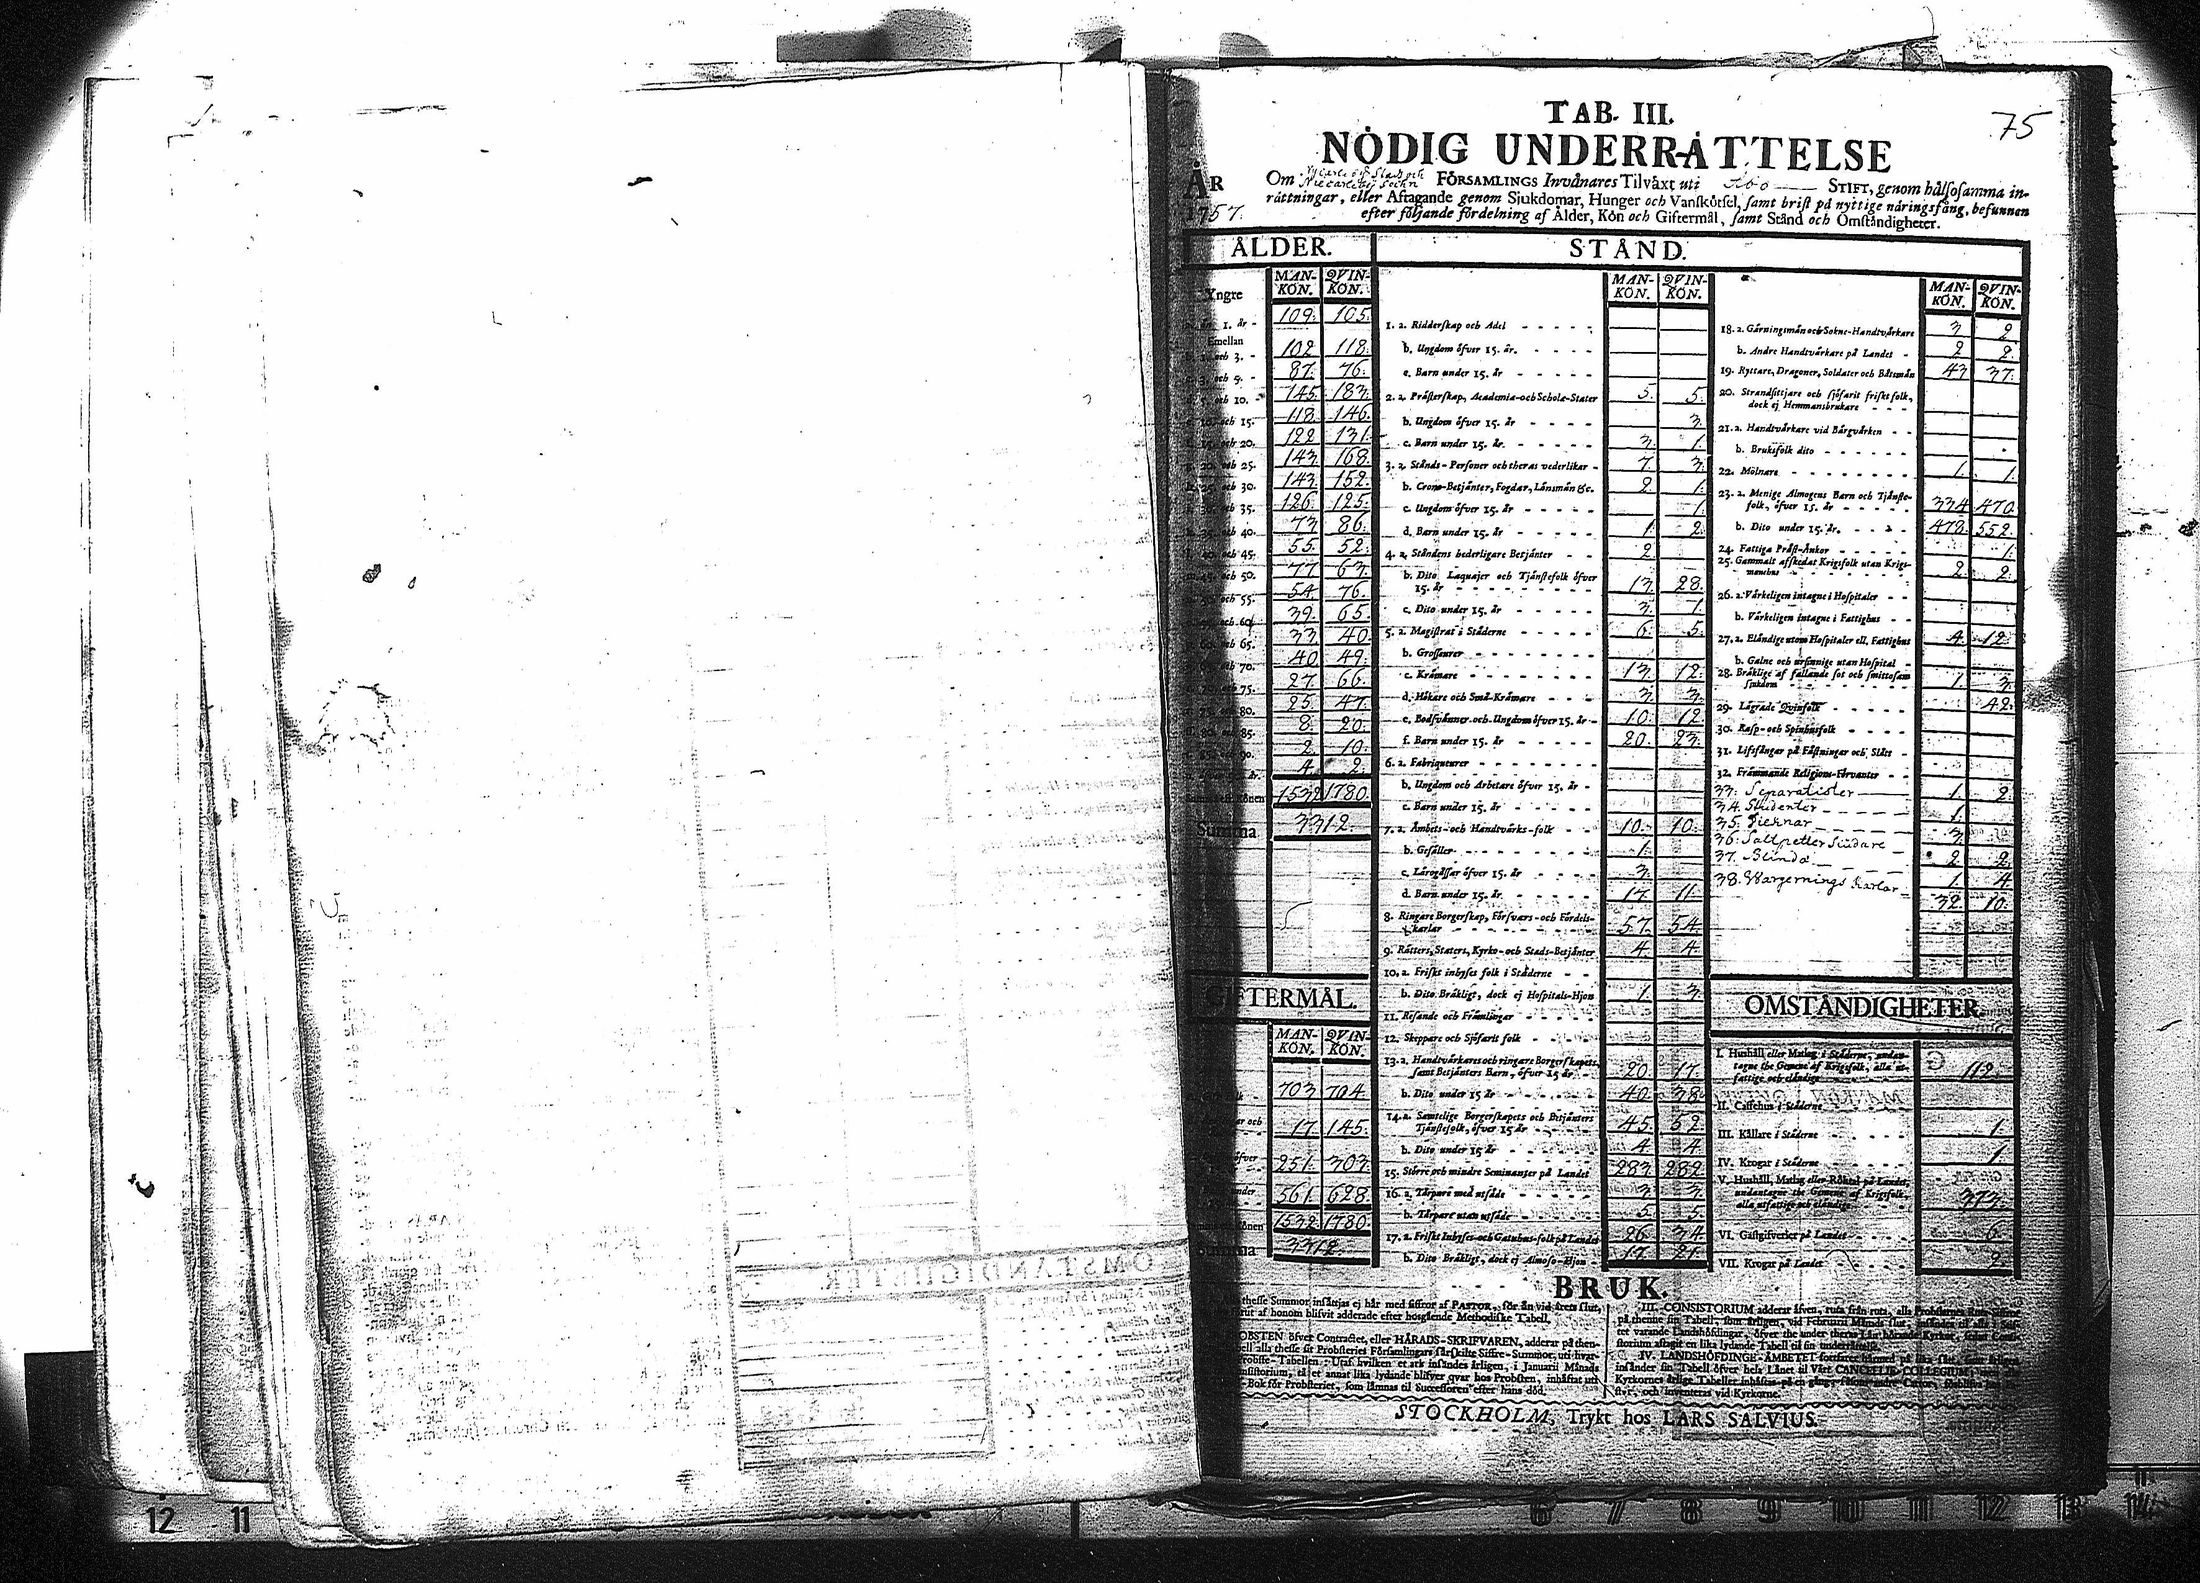 75
TAB. III.
NÖDIG UNDERRÄTTELSE
ÅR 1757.
Om Nycarleby Stad och
Niecarleby Sochn FÖRSAMLINGS Invånares Tilväxt uti Åbo STIFT, genom hälsosamma in-
rättningar, eller Aftagande genom Sjukdomar, Hunger och Vanskötsel, samt brist på nyttige näringsfång, befunnen
efter följande fördelning af Ålder, Kön och Giftermål, samt Stånd och Omständigheter.
ÅLDER.
MAN-KÖN. QVIN-KÖN.
Yngre
1. år - 109. 105.
Emellan
och 3. - 102 118.
3. och 5. - 87. 76.
och 10. - 145. 183.
10. och 15. 118. 146.
15. och 20. 122 131.
20. och 25. 143. 168.
25. och 30. 143. 152.
30. och 35. 126. 125.
och 40. 73. 86.
40. och 45. 55. 52.
45. och 50. 77. 63.
och 55. 54. 76.
och 60. 39. 65.
60. 65. 33. 40.
70. 40. 49.
75. 27. 66.
80. 25. 47.
85. 8. 20.
90. 2. 10.
4. 2.
Könen 1532 1780.
Summa 3312.
GIFTERMÅL.
MAN-KÖN. QVIN-KÖN.
703 704.
och 17. 145.
öfver 251. 303.
under 561. 628.
Könen 1532. 1780.
Summa 3312.
STÅND.
MAN-KÖN. QVIN-KÖN.
1. a. Ridderskap och Adel
b. Ungdom öfver 15. år.
c. Barn under 15. år
2. a. Prästerskap, Academiæ-och Scholæ-Stater 5. 5.
b. Ungdom öfver 15. år 3.
c. Barn under 15. år. 3. 1.
3. a. Stånds-Personer och theras vederlikar 7. 3.
b. Crono-Betjänter, Fogdar, Länsmän &c. 2. 1.
c. Ungdom öfver 15. år 1.
d. Barn under 15. år 1. 2.
4. a. Ståndens hederligare Betjänter 2.
b. Dito Laquajer och Tjänstefolk öfver
15. år 13. 28.
c. Dito under 15. år 3. 1.
5. a. Magistrat i Städerne 6. 5.
b. Grosseurer
c. Krämare 13. 12.
d. Hökare och Små-Krämare 3. 3.
e. Bodsvänner och Ungdom öfver 15. år 10. 12.
f. Barn under 15. år 20. 23.
6. a. Fabriqueurer
b. Ungdom och Arbetare öfver 15. år
c. Barn under 15. år
7. a. Ämbets-och Handtvärks-folk 10. 10.
b. Gesäller 1.
c. Lärogåssar öfver 15. år 3.
d. Barn under 15. år 17. 11.
8. Ringare Borgerskap, Försvars-och Fördels-
karlar 57. 54.
9. Rätters, Staters, Kyrko-och Stads-Betjänter 4. 4.
10. a. Friskt inhyses folk i Städerne
b. Dito Bräkligt, dock ej Hospitals-Hjon 1. 3.
11. Resande och Främlingar
12. Skeppare och Sjöfarit folk
13. a. Handtvärkares och ringare Borgerskapets,
samt Betjänters Barn, öfver 15 år 20. 17.
b. Dito under 15 år 40. 38.
14. a. Samtelige Borgerskapets och Betjänters
Tjänstefolk, öfver 15 år 45. 52.
b. Dito under 15 år 4. 4.
15. Större och mindre Hemmansjter på Landet 283. 282.
16. a. Tårpare med utsäde 3. 3.
b. Tårpare utan utsäde 5. 5.
17. a. Friskt Inhyses-och Gatuhus-folk på Landet 26. 34.
b. Dito Bräkligt, dock ej Almoso-Hjon 17. 21.
MAN-KÖN. QVIN-KÖN.
18. a. Gärningsmän och Sokne-Handtvärkare 3. 2.
b. Andre Handtvärkare på Landet 2. 2.
19. Ryttare, Dragoner, Soldater och Båtsmän 43. 37.
20. Strandsittjare och sjöfarit friskt folk,
dock ej Hemmansbrukare
21. a. Handtvärkare vid Bärgvärken
b. Bruksfolk dito
22. Mölnare 1. 1.
23. a. Menige Almogens Barn och Tjänste-
folk, öfver 15. år 334. 470.
b. Dito under 15. år. 478. 552.
24. Fattiga Präst-Änkor 1.
25. Gammalt afskedat Krigsfolk utan Krigs-
manshus 2. 2.
26. a. Värkeligen intagne i Hospitaler
b. Värkeligen intagne i Fattighus
27. a. Eländige utom Hospitaler ell. Fattighus 4. 12.
b. Galne och ursinnige utan Hospital
28. Bräklige af fallande sot och smittosam
sjukdom 1. 3.
29. Lägrade Qvinfolk 42.
30. Rasp-och Spinhusfolk
31. Lifsfångar på Fästningar och Slått
32. Främmande Religions-Förvanter
33. Separatister 1. 2.
34. Studenter 1.
35. Pieknar 3.
36. Saltpetter Siudare 2. 2.
37. Blinda 1. 4.
38. Wargernings Karlar 32. 10.
OMSTÄNDIGHETER.
I. Hushåll eller Matlag i Städerne, undan-
tagne the Gemene af Krigsfolk, alla ut-
fattige och eländige 112.
II. Caffehus i Städerne
III. Källare i Städerne 1.
IV. Krogar i Städerne 1.
V. Hushåll, Matlag eller Röktal på Landet,
undantagne the Gemene af Krigsfolk,
alla utfattige och eländige 373.
VI. Gästgifverier på Landet 6.
VII. Krogar på Landet 2.
BRUK.
thesse Summor insättjas ej här med siffror af PASTOR, för än vid årets slut,
rut af honom blifvit adderade efter högstående Methodiske Tabell.
OBSTEN öfver Contractet, eller HÄRADS-SKRIFVAREN, adderar på then-
ell alla thesse sit Probsteries Församlingars särskilte Siffre-Summor, uti hvar-
robste-Tabellen: Utaf hvilken et ark insändes årligen, i Januarii Månads
nsistorium, tå et annat lika lydande blifver qvar hos Probsten, inhäftat uti
-Bok för Probsteriet, som lämnas til Successoren efter hans död.
III. CONSISTORIUM adderar äfven, ruta från ruta, alla Probstiernes
på thenne sin Tabell, som årligen, vid Februarii Månads slut, insändes til alla i Stif-
tet varande Landshöfdingar, öfver the under theras Län hörande Kyrkor, samt Consi-
storium aftagit en lika lydande Tabell til sin underrättelse.
IV. LANDSHÖFDINGE-ÄMBETET
insänder sin Tabell öfver hela Länet til Vårt CANCELLIE-COLLEGIUM
Kyrkornes årlige Tabeller inhäftas på en gång,
och inventeras vid Kyrkorne.
STOCKHOLM, Trykt hos LARS SALVIUS.
12 11 6 7 8 9 10 11 12 13 14